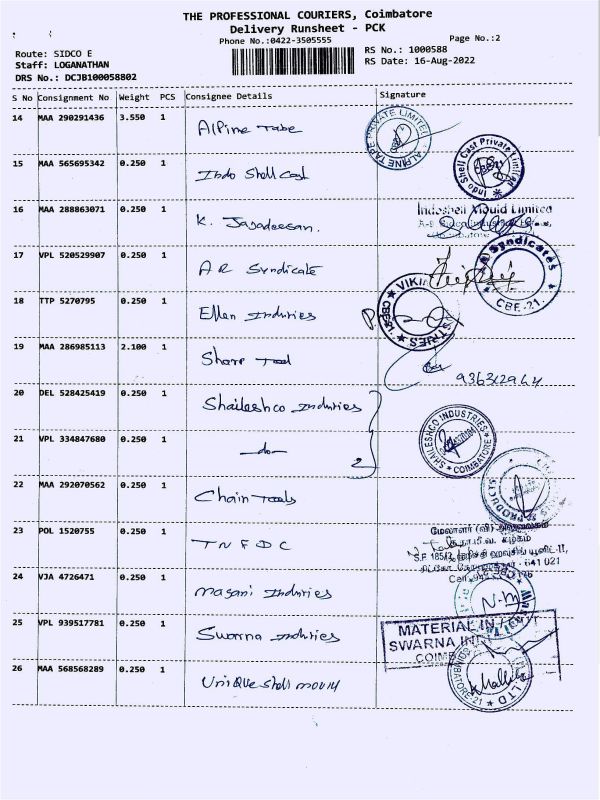 THE PROFESSIONAL COURIERS, Coimbatore
Delivery Runsheet - PCK
Phone No.:0422-3505555
Page No.:2
Route: SIDCO E
Staff: LOGANATHAN
DRS No.: DCJB100058802
RS No.: 1000588
RS Date: 16-Aug-2022
S No Consignment No Weight PCS Consignee Details Signature
14 MAA 290291436 3.550 1 Alpine Tape
ALPINE TAPE PRIVATE LIMITED
15 MAA 565695342 0.250 1 Indo Shell Cast
Indo Shell Cast Private Limited
16 MAA 288863071 0.250 1 K. Jagadeesan.
Indoshell Mould Limited
17 VPL 520529907 0.250 1 AR Syndicate
Syndicates
CBE-21
18 TTP 5270795 0.250 1 Ellen Indntries
VIKI
19 MAA 286985113 2.100 1 Sharp Tool
20 DEL 528425419 0.250 1 Shaileshco Indntries
21 VPL 334847680 0.250 1 -do- 2
SHAILESHCO INDUSTRIES
COIMBATORE
22 MAA 292070562 0.250 1 Chain Tools
PRODUCTS
23 POL 1520755 0.250 1 TNFDC
641 021
24 VJA 4726471 0.250 1 Magani Indntries
N.M
25 VPL 939517781 0.250 1 Swarna Indntries
MATERIAL IN
SWARNA IN
COIMB
26 MAA 568568289 0.250 1 Unique Shell Mould
LTD